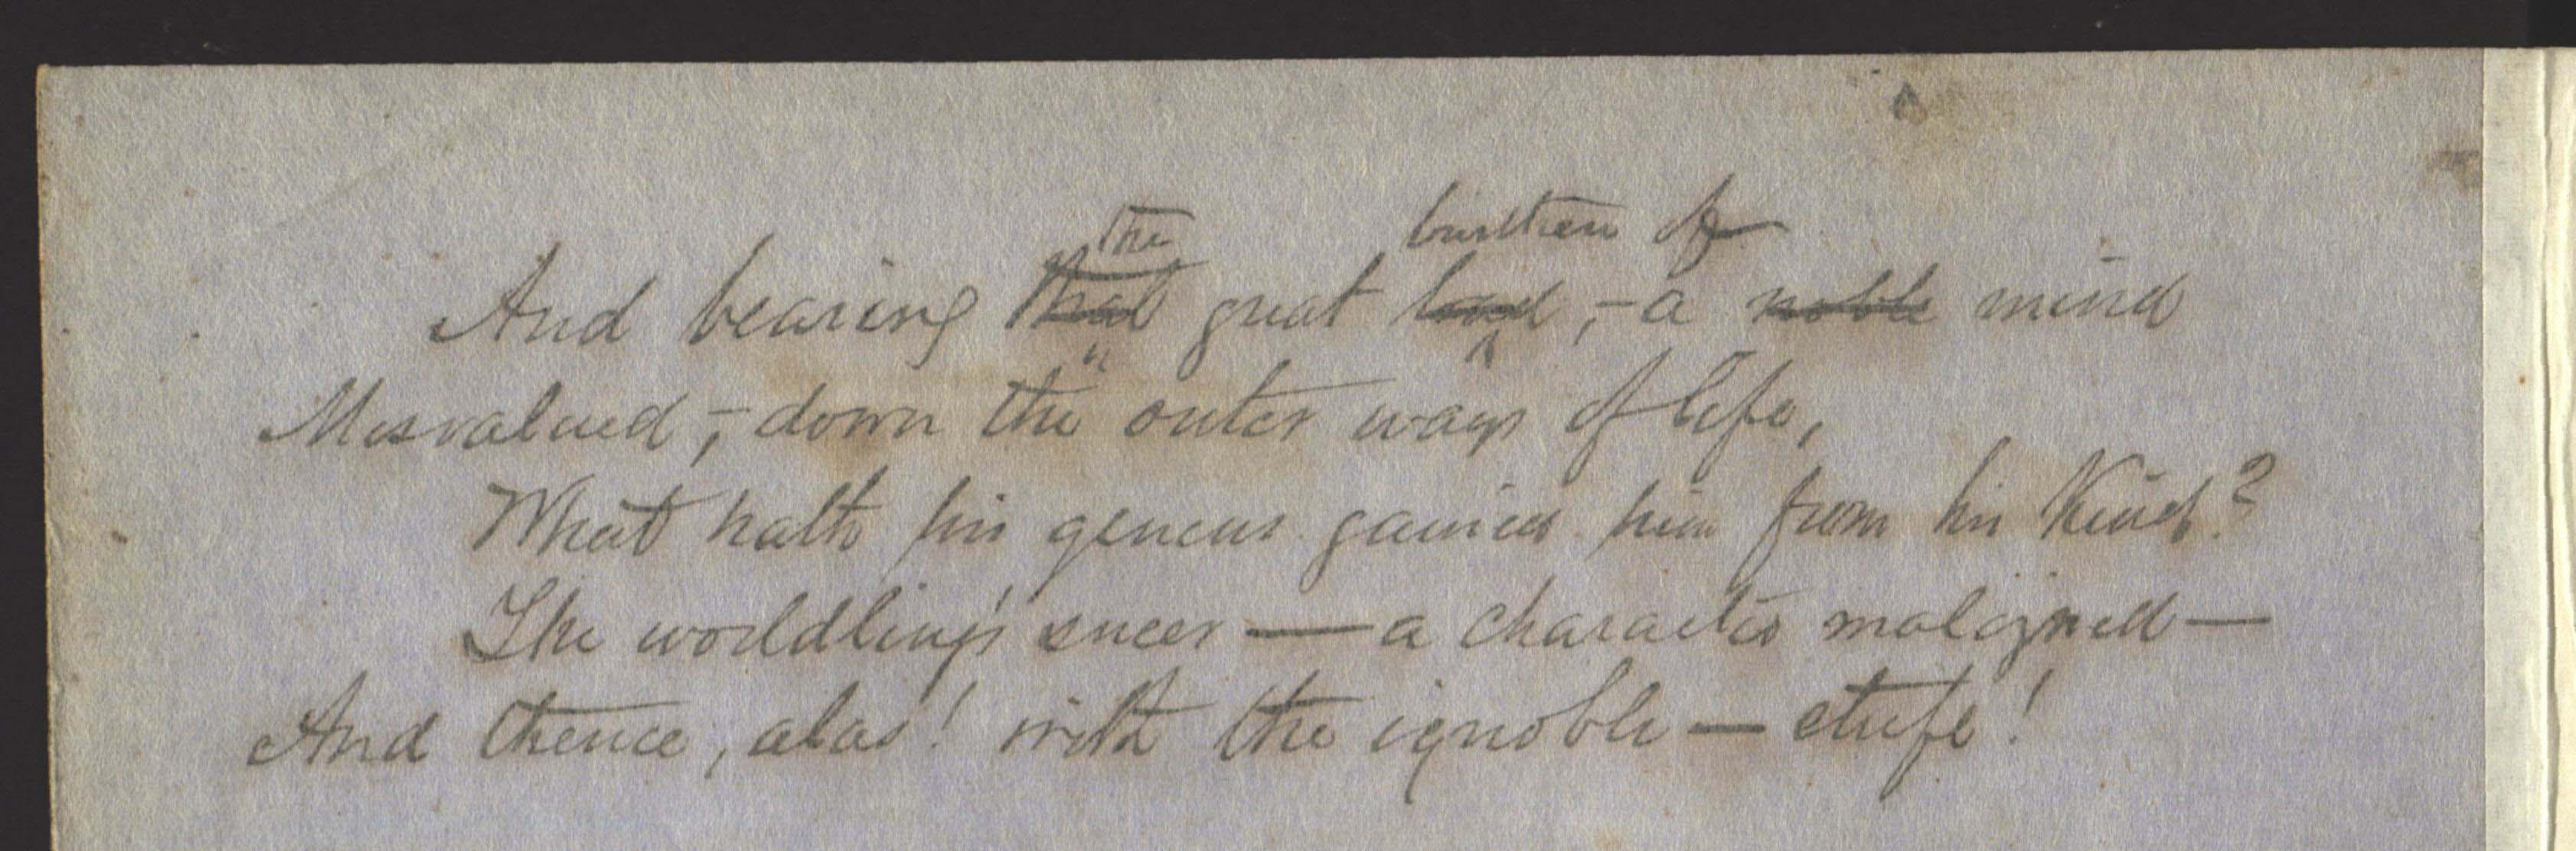 the burthen of
And bearing that great load,—a noble mind
Misvalued,—down the outer ways of life,
What hath his genius gained him from his Kind?
The worldling's sneer — a character maligned —
And thence, alas! with the ignoble — strife!